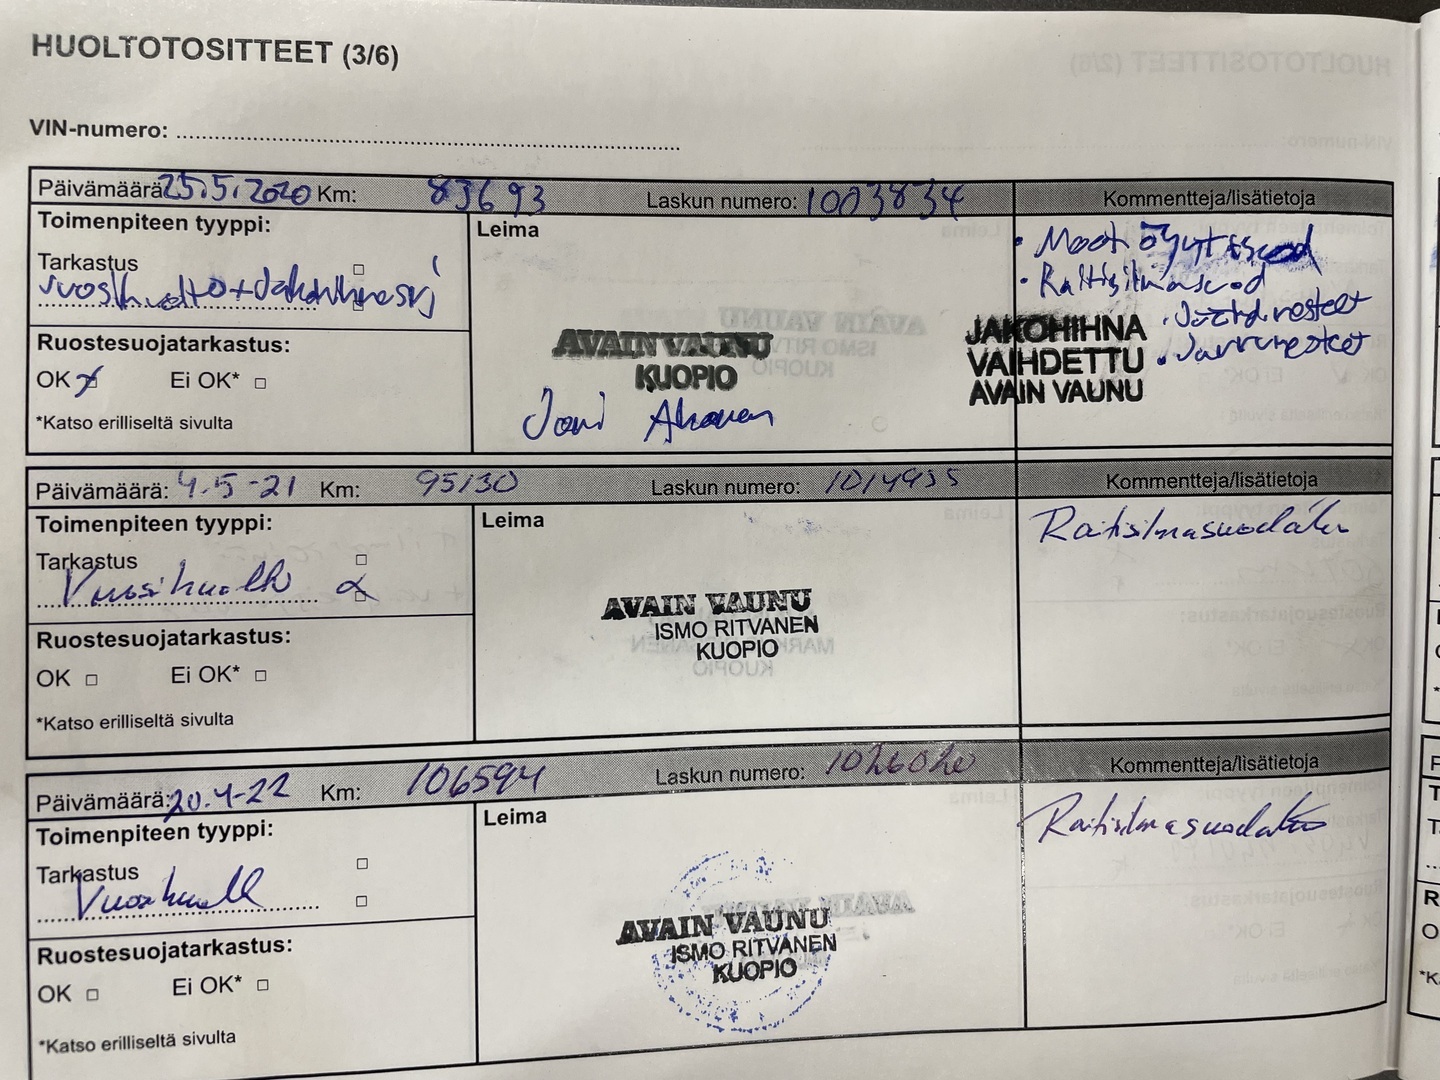 HUOLTOTOSITTEET (3/6)
VIN-numero:
Päivämäärä 25.5.2020 Km: 83693 Laskun numero: 1003834 Kommentteja/lisätietoja
Toimenpiteen tyyppi:
Leima
Tarkastus
Ruostesuojatarkastus:
OK Ei OK*
*Katso erilliseltä sivulta
AVAIN VAUNU
KUOPIO
Joni
• Raitisilmasuod
JAKOHIHNA
VAIHDETTU
AVAIN VAUNU
• Jäähdnesteet
• Jarrunesteet
Päivämäärä: 4.5-21 Km: 95130 Laskun numero: 1014935 Kommentteja/lisätietoja
Toimenpiteen tyyppi:
Leima
Tarkastus
Vuosihuolto
Ruostesuojatarkastus:
OK Ei OK*
*Katso erilliseltä sivulta
AVAIN VAUNU
ISMO RITVANEN
KUOPIO
Raitisilmasuodatin
Päivämäärä: 20.4-22 Km: 106594 Laskun numero: 1026020 Kommentteja/lisätietoja
Toimenpiteen tyyppi:
Leima
Tarkastus
Vuosihuolto
Ruostesuojatarkastus:
OK Ei OK*
*Katso erilliseltä sivulta
AVAIN VAUNU
ISMO RITVANEN
KUOPIO
Raitisilmasuodatin